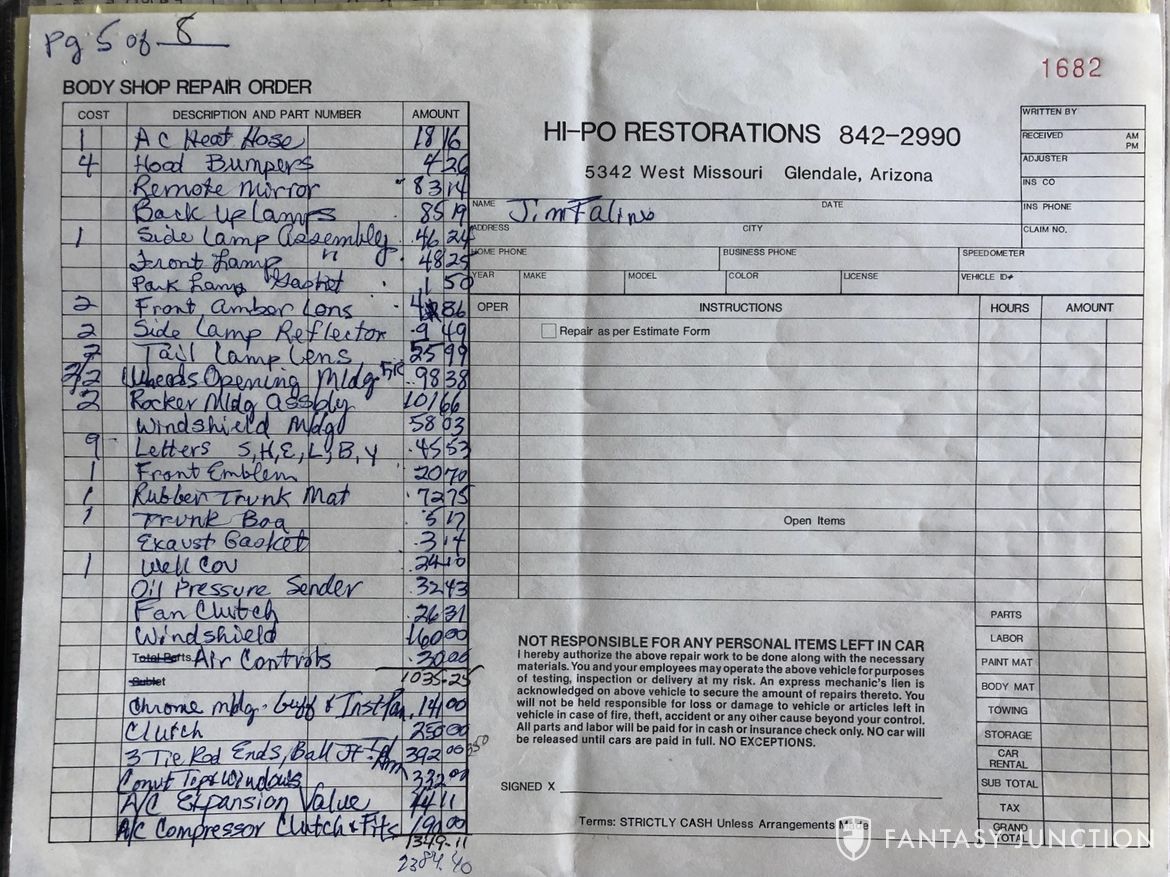 Pg 5 of 8
1682
BODY SHOP REPAIR ORDER
COST DESCRIPTION AND PART NUMBER AMOUNT
1 AC Heat Hose 18 16
4 Hood Bumpers 4 26
Remote Mirror 83 14
Back Up Lamps 85 19
1 Side Lamp Assembly 46 24
Front Lamp " 48 25
Park Lamp Gasket 1 50
2 Front Amber Lens 86
2 Side Lamp Reflector 9 49
2 Tail Lamp Lens 25 99
2 Wheels Opening Mldg 98 38
2 Rocker Mldg Assbly 101 66
Windshield Mldg 58 03
9 Letters S, H, E, L, B, Y 45 53
1 Front Emblem 20 70
1 Rubber Trunk Mat 72 75
1 Trunk Bag 5 17
Exaust Gasket 3 14
1 Well Cov 24 10
Oil Pressure Sender 32 43
Fan Clutch 26 31
Windshield 160 00
Total Parts Air Controls 30 00
Sublet 1035-25
Chrome mldg. buff & Inst Pan. 141 00
Clutch 250 00
3 Tie Rod Ends, Ball Jt Idl Arm 392 00 350
Convt Top & Windows 332 00
A/C Expansion Valve 44 11
A/C Compressor Clutch & Fits 190 00
1349-11
2384.40
HI-PO RESTORATIONS 842-2990
5342 West Missouri Glendale, Arizona
WRITTEN BY
RECEIVED AM PM
ADJUSTER
INS CO
INS PHONE
CLAIM NO.
NAME Jim Falino DATE
ADDRESS CITY
HOME PHONE BUSINESS PHONE SPEEDOMETER
YEAR MAKE MODEL COLOR LICENSE VEHICLE ID#
OPER INSTRUCTIONS HOURS AMOUNT
Repair as per Estimate Form
Open Items
NOT RESPONSIBLE FOR ANY PERSONAL ITEMS LEFT IN CAR
I hereby authorize the above repair work to be done along with the necessary
materials. You and your employees may operate the above vehicle for purposes
of testing, inspection or delivery at my risk. An express mechanic's lien is
acknowledged on above vehicle to secure the amount of repairs thereto. You
will not be held responsible for loss or damage to vehicle or articles left in
vehicle in case of fire, theft, accident or any other cause beyond your control.
All parts and labor will be paid for in cash or insurance check only. NO car will
be released until cars are paid in full. NO EXCEPTIONS.
SIGNED X
Terms: STRICTLY CASH Unless Arrangements Made
PARTS
LABOR
PAINT MAT
BODY MAT
TOWING
STORAGE
CAR RENTAL
SUB TOTAL
TAX
GRAND TOTAL
FANTASY JUNCTION